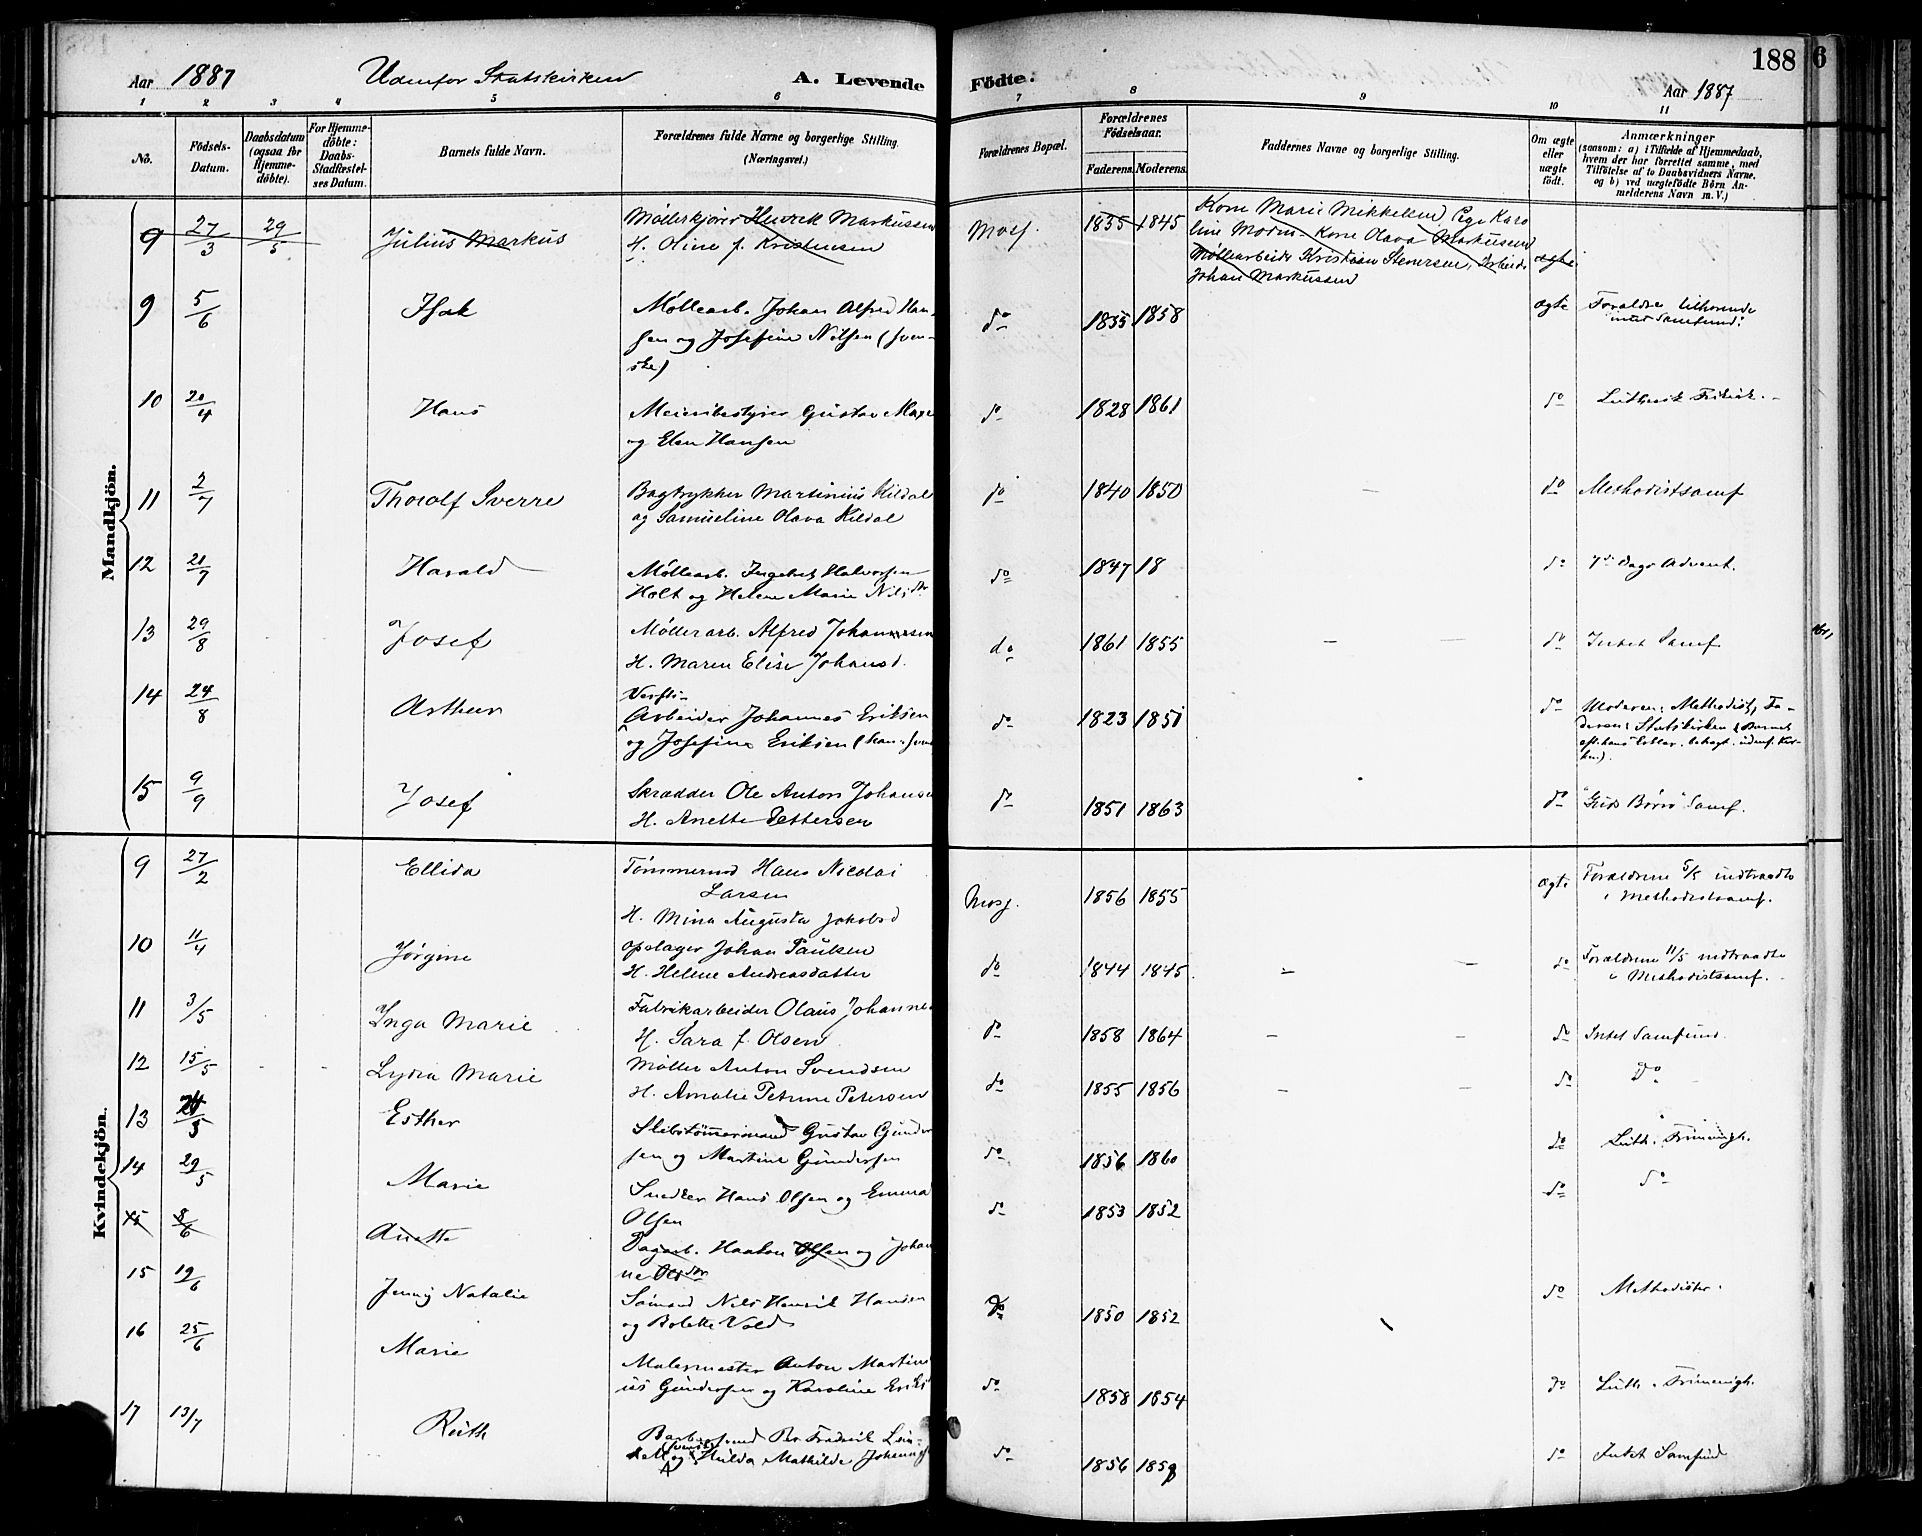 Aar 1887 Udenfor Statskirken A. Levende Fødte. Aar 1887
188
6
1 2 3 4 5 6 7 8 9 10 11
No.
Födsels-Datum.
Daabsdatum (ogsaa for Hjemme-döbte).
For Hjemme-döbte: Daabs-Stadfæstel-ses Datum.
Barnets fulde Navn.
Forældrenes fulde Navne og borgerlige Stilling. (Næringsvei.)
Forældrenes Bopæl.
Forældrenes Födselsaar.
Faderens. Moderens.
Faddernes Navne og borgerlige Stilling.
Om ægte eller uægte födt.
Anmærkninger (saasom: a) i Tilfælde af Hjemmedaab, hvem der har forrettet samme, med Tilföielse af to Daabsvidners Navne, og b) ved uægtefödte Börn An-melderens Navn m. V.)
Mandkjön.
9 27/3 29/5 Julius Markus Henrik Markussen Moss. 1835 1845 Korne Marie Mikkelsen, Pige Karo
H. Oline f. Kristensen line Korne Olava Markussen
Møllearbeider Kristian Stenersen, Arbeider ægte
Johan Markussen
9 5/6 Isak Møllearb. Johan Alfred Han- do 1855 1858 ægte Forældre tilhørende
sen og Josefine Nilsen (sven- intet Samfund.
ske)
10 20/4 Hans Meieribestyrer Gustav do 1828 1861 do Luthersk Frikirk.
og Elen Hansen
11 2/7 Thorolf Sverre Bogtrykker Martinius Kildal do 1840 1850 – do Methodistsamf
og Samueline Olava Kildal
12 21/7 Harald Møllearb. Ingebret Halvorsen do 1847 18 do 7de Dags Advent.
Holt og Helene Marie Nilsdtr
13 29/8 Josef Møllerarb. Alfred Johannesen do 1861 1855 – – do Intet Samf
H. Maren Elise Johansd.
14 24/8 Arthur Verfts-
Arbeider Johannes Eriksen do 1823 1851 do Moderen: Methodist, Fa-
og Josefine Eriksen deren: Statskirken
15 9/9 Josef Skrædder Ole Anton Johansen do 1851 1863 do "Guds Børns" Samf.
H. Anette Pettersen
Kvindekjön.
9 27/2 Ellida Tømmermd Hans Nicolai Moss. 1856 1855 ægte Forældrene 5/5 indtraadte
Larsen i Methodistsamf.
H. Mina Augusta Jakobsd
10 11/4 Jørgine Opslager Johan Paulsen do 1844 1845 – – do Forældrene 11/5 indtraadte
H. Helene Andreasdatter i Methodistsamf.
11 3/5 Inga Marie Fabrikarbeider Olaus Johanne do 1858 1864 – – do Intet Samfund.
H. Sara f. Olsen
12 15/5 Lydia Marie Møller Anton Svendsen do 1855 1856 – – do Do
H. Amalie Petrine Petersen
13 Esther Skibstømmermand Gustav Gunder do 1856 1860 do Luth. Frimenigh.
sen og Martine Gundersen
14 29/5 Marie Snedker Hans Olsen og Emma do 1853 1852 do do
Olsen
15 8/6 Anette Dagarb. Haakon Olsen og Johan
ne Olsdtr
15 19/6 Jenny Natalie Sømand Nils Henrik Hansen do 1850 1852 do Methodister.
og Bolette Vold
16 25/6 Marie Malermester Anton Martin do 1858 1854 do Luth. Frimenigh.
ius Gundersen og Karoline
17 13/7 Ruth Per Fredrik do 1856 1859 do Intet Samfund
og Hulda Mathilde